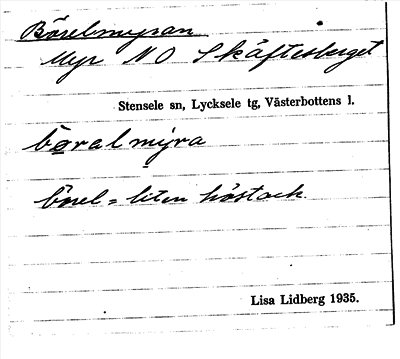 Börelmyran
Myr NO Skäftesberget
Stensele sn, Lycksele tg, Västerbottens l.
børalmyra
börel = liten höstack.
Lisa Lidberg 1935.